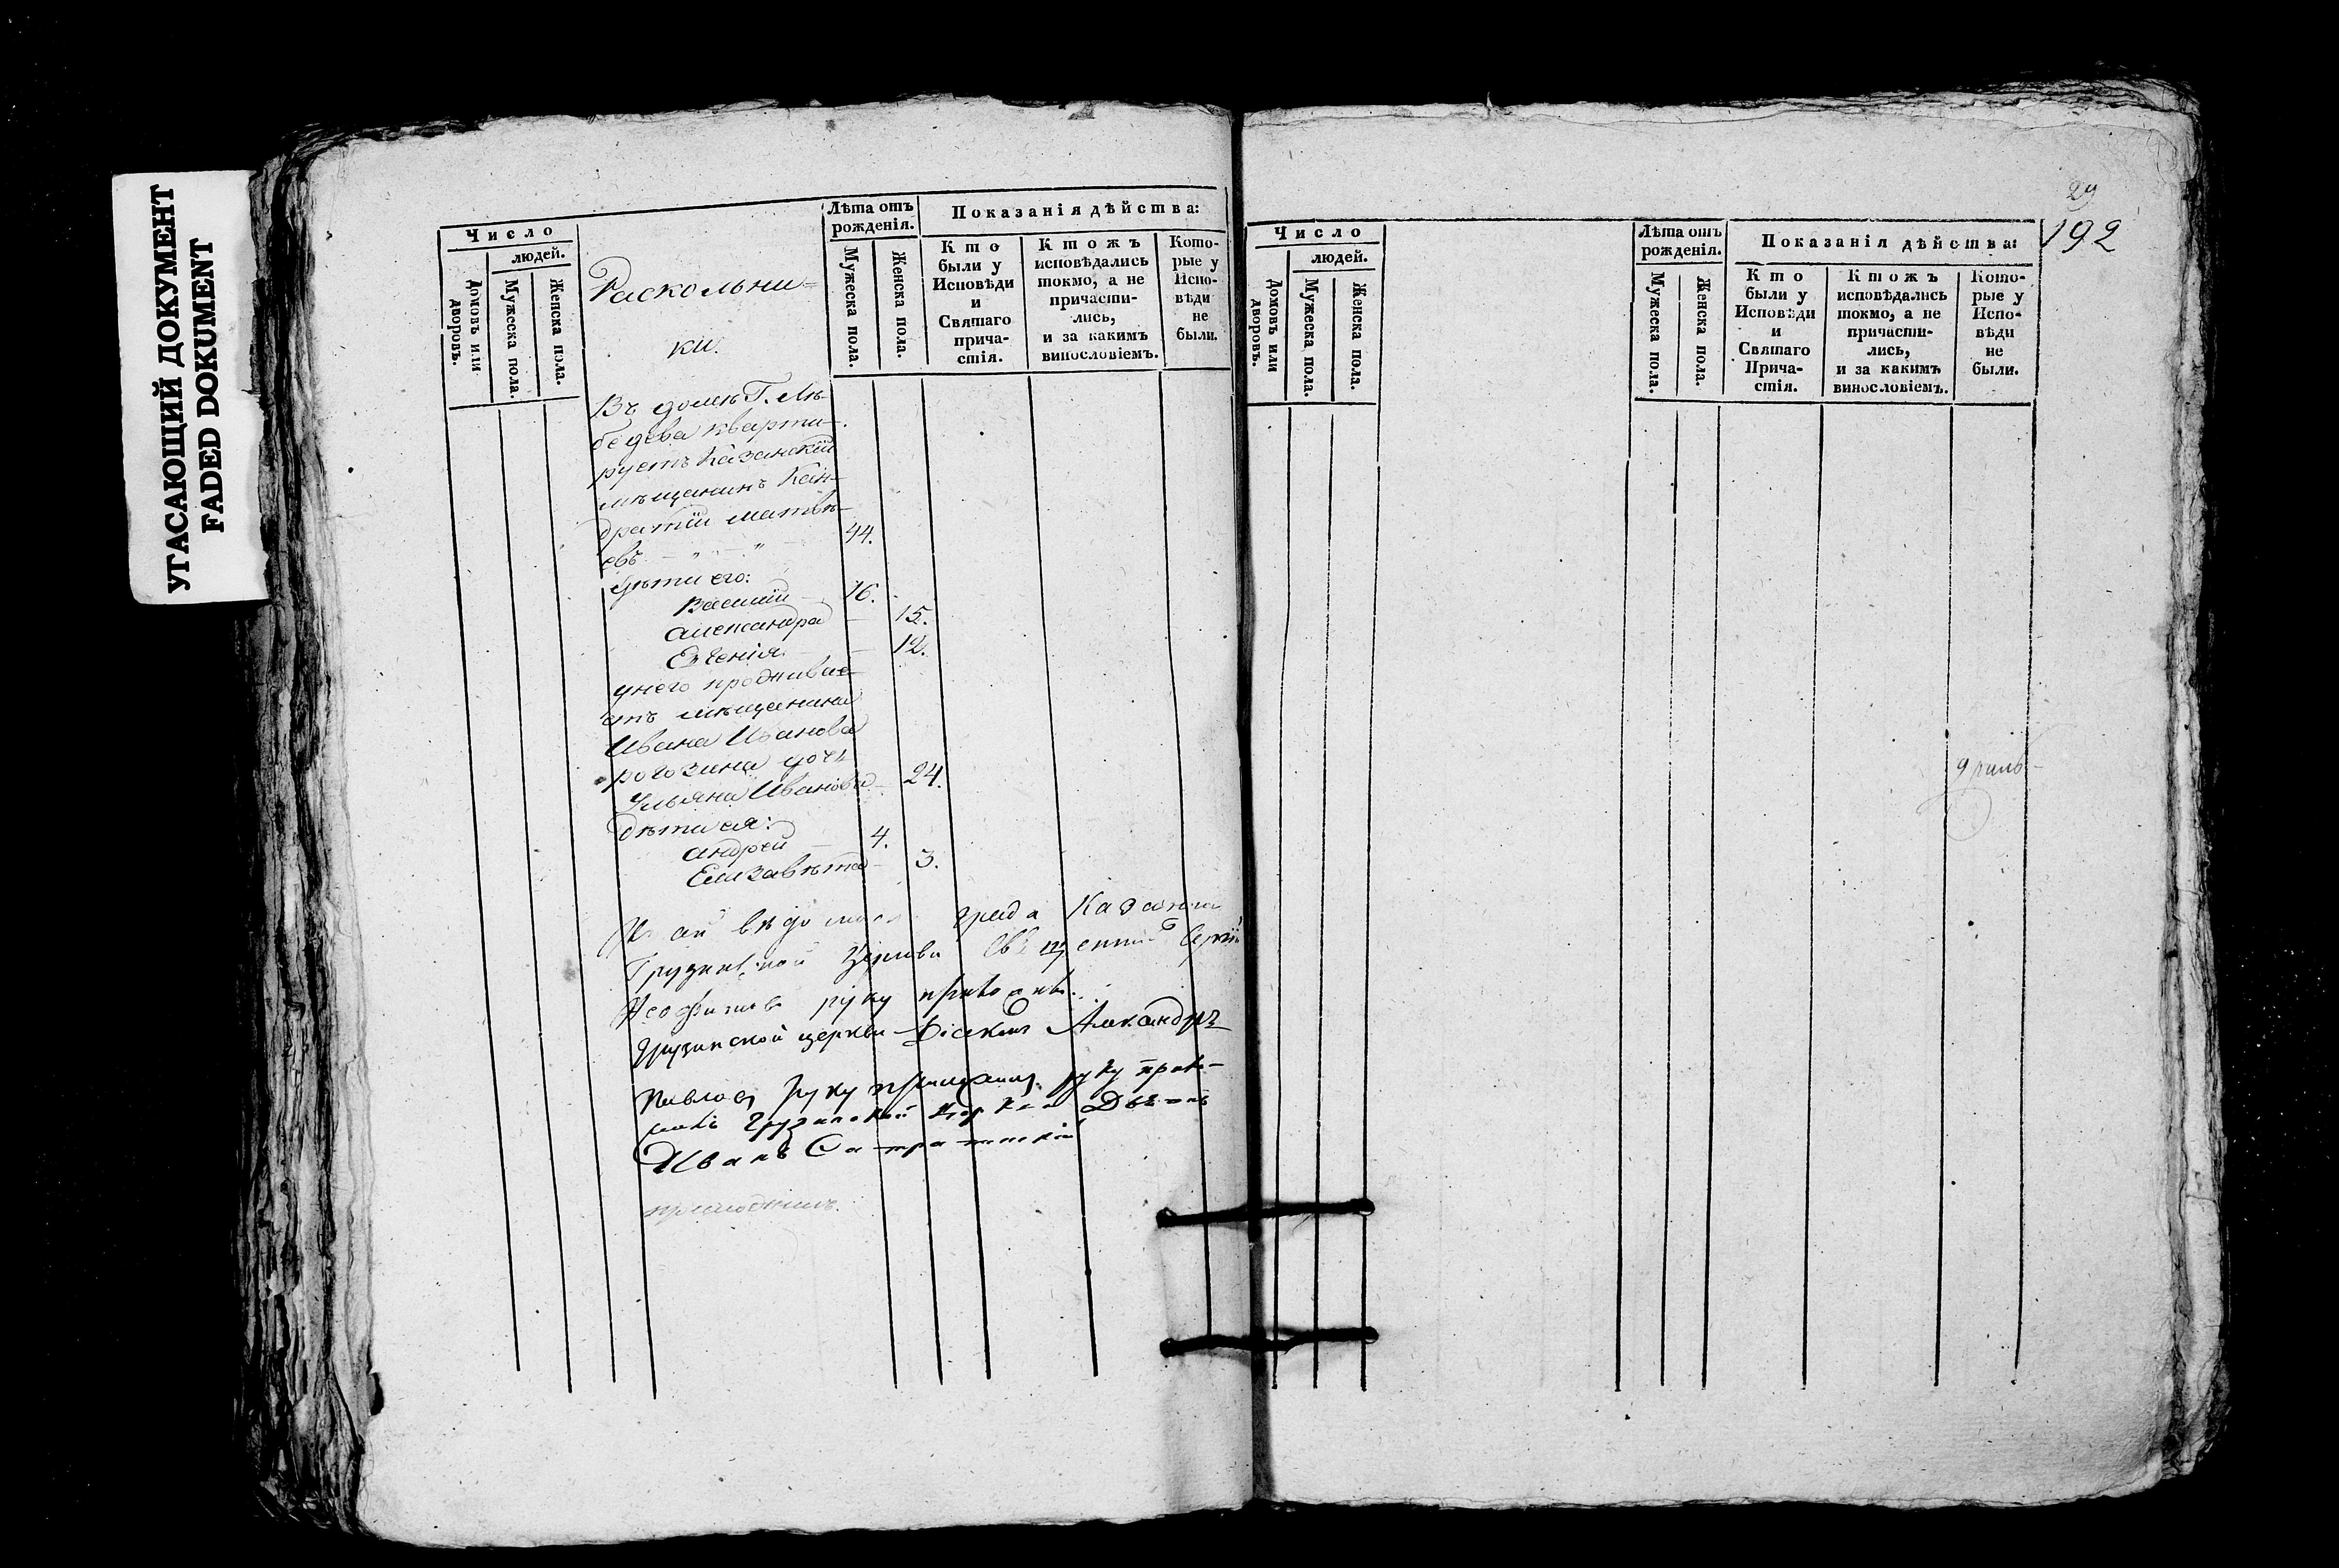 УГАСАЮЩИЙ ДОКУМЕНТ
FADED DOKUMENT
Число
людей.
Домовъ или дворовъ.
Мужеска пола.
Женска пола.
Раскольни=
ки.
Лѣта отъ рожденія.
Мужеска пола.
Женска пола.
Показанія дѣйства:
Кто были у Исповѣди и Святаго причастія.
Ктожъ исповѣдались токмо, а не причастились, и за какимъ винословіемъ.
Которые у Исповѣди не были.
Въ домѣ Г. Лѣ-
бедева кварти-
руетъ Казанскій
мѣщанинъ Кон-
дратій Матвѣ-
евъ - „ - „ - 44.
дѣти его:
Василій - 16.
Александра - 15.
Евгенія - - 12.
у него проживае-
етъ мѣщанина
Ивана Иванова
рогозина дочь
Ульяна Иванова - 24.
Дѣти ея:
Андрей - 4.
Елизавѣта - 3.
града
Грузинской Церкви Священникъ
руку приложилъ.
Грузинской церкви Діаконъ Александръ
Павловъ руку приложилъ. руку прило-
жилъ Грузинской Церкви
Иванъ
приложилъ.
29
192
Число
людей.
Домовъ или дворовъ.
Мужеска пола.
Женска пола.
Лѣта отъ рожденія.
Мужеска пола.
Женска пола.
Показанія дѣйства:
Кто были у Исповѣди и Святаго Причастія.
Ктожъ исповѣдались токмо, а не причастились, и за какимъ винословіемъ.
Которые у Исповѣди не были.